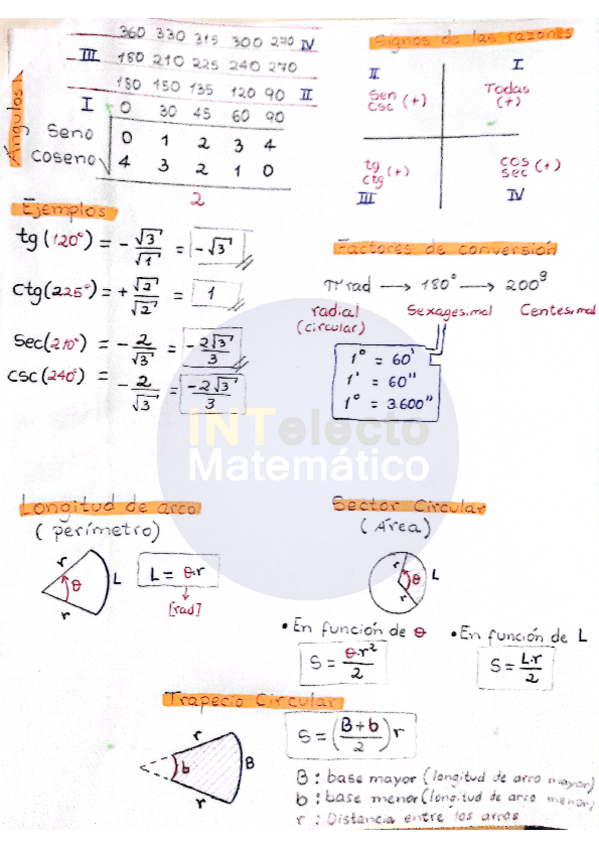 360 330 315 300 270 IV
III 180 210 225 240 270
180 150 135 120 90 II
I 0 30 45 60 90
Ángulos
Seno 0 1 2 3 4
coseno √ 4 3 2 1 0
2
Signos de las razones
II
Sen
Csc (+)
I
Todas
(+)
tg
ctg (+)
III
cos
sec (+)
IV
Ejemplos
tg(120°) = - √3/√1 = -√3
ctg(225°) = + √2/√2 = 1
Sec(210°) = - 2/√3 = -2√3/3
csc(240°) = - 2/√3 = -2√3/3
Factores de conversión
π rad → 180° → 200g
radial
(circular)
Sexagesimal
Centesimal
1° = 60'
1' = 60"
1° = 3.600"
INTelecto
Matemático
Longitud de arco
(perímetro)
r θ L r
L = θ.r
[rad]
Sector Circular
(Área)
r θ L r
• En función de θ
S = θ.r²/2
• En función de L
S = L.r/2
Trapecio Circular
r b B r
S = (B+b/2) r
B: base mayor (longitud de arco mayor)
b: base menor (longitud de arco menor)
r: Distancia entre los arcos